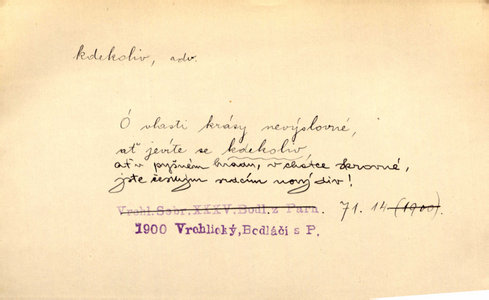 kdekoliv, adv.
Ó vlasti krásy nevýslovné,
ať jevíte se kdekoliv,
ať v pyšném hradu, v chatce skrovné,
jste českým srdcím nový div!
Vrchl.Sebr.XXXV.Bodl.z Parn. 71. 14 (1900).
1900 Vrchlický, Bodláčí s P.